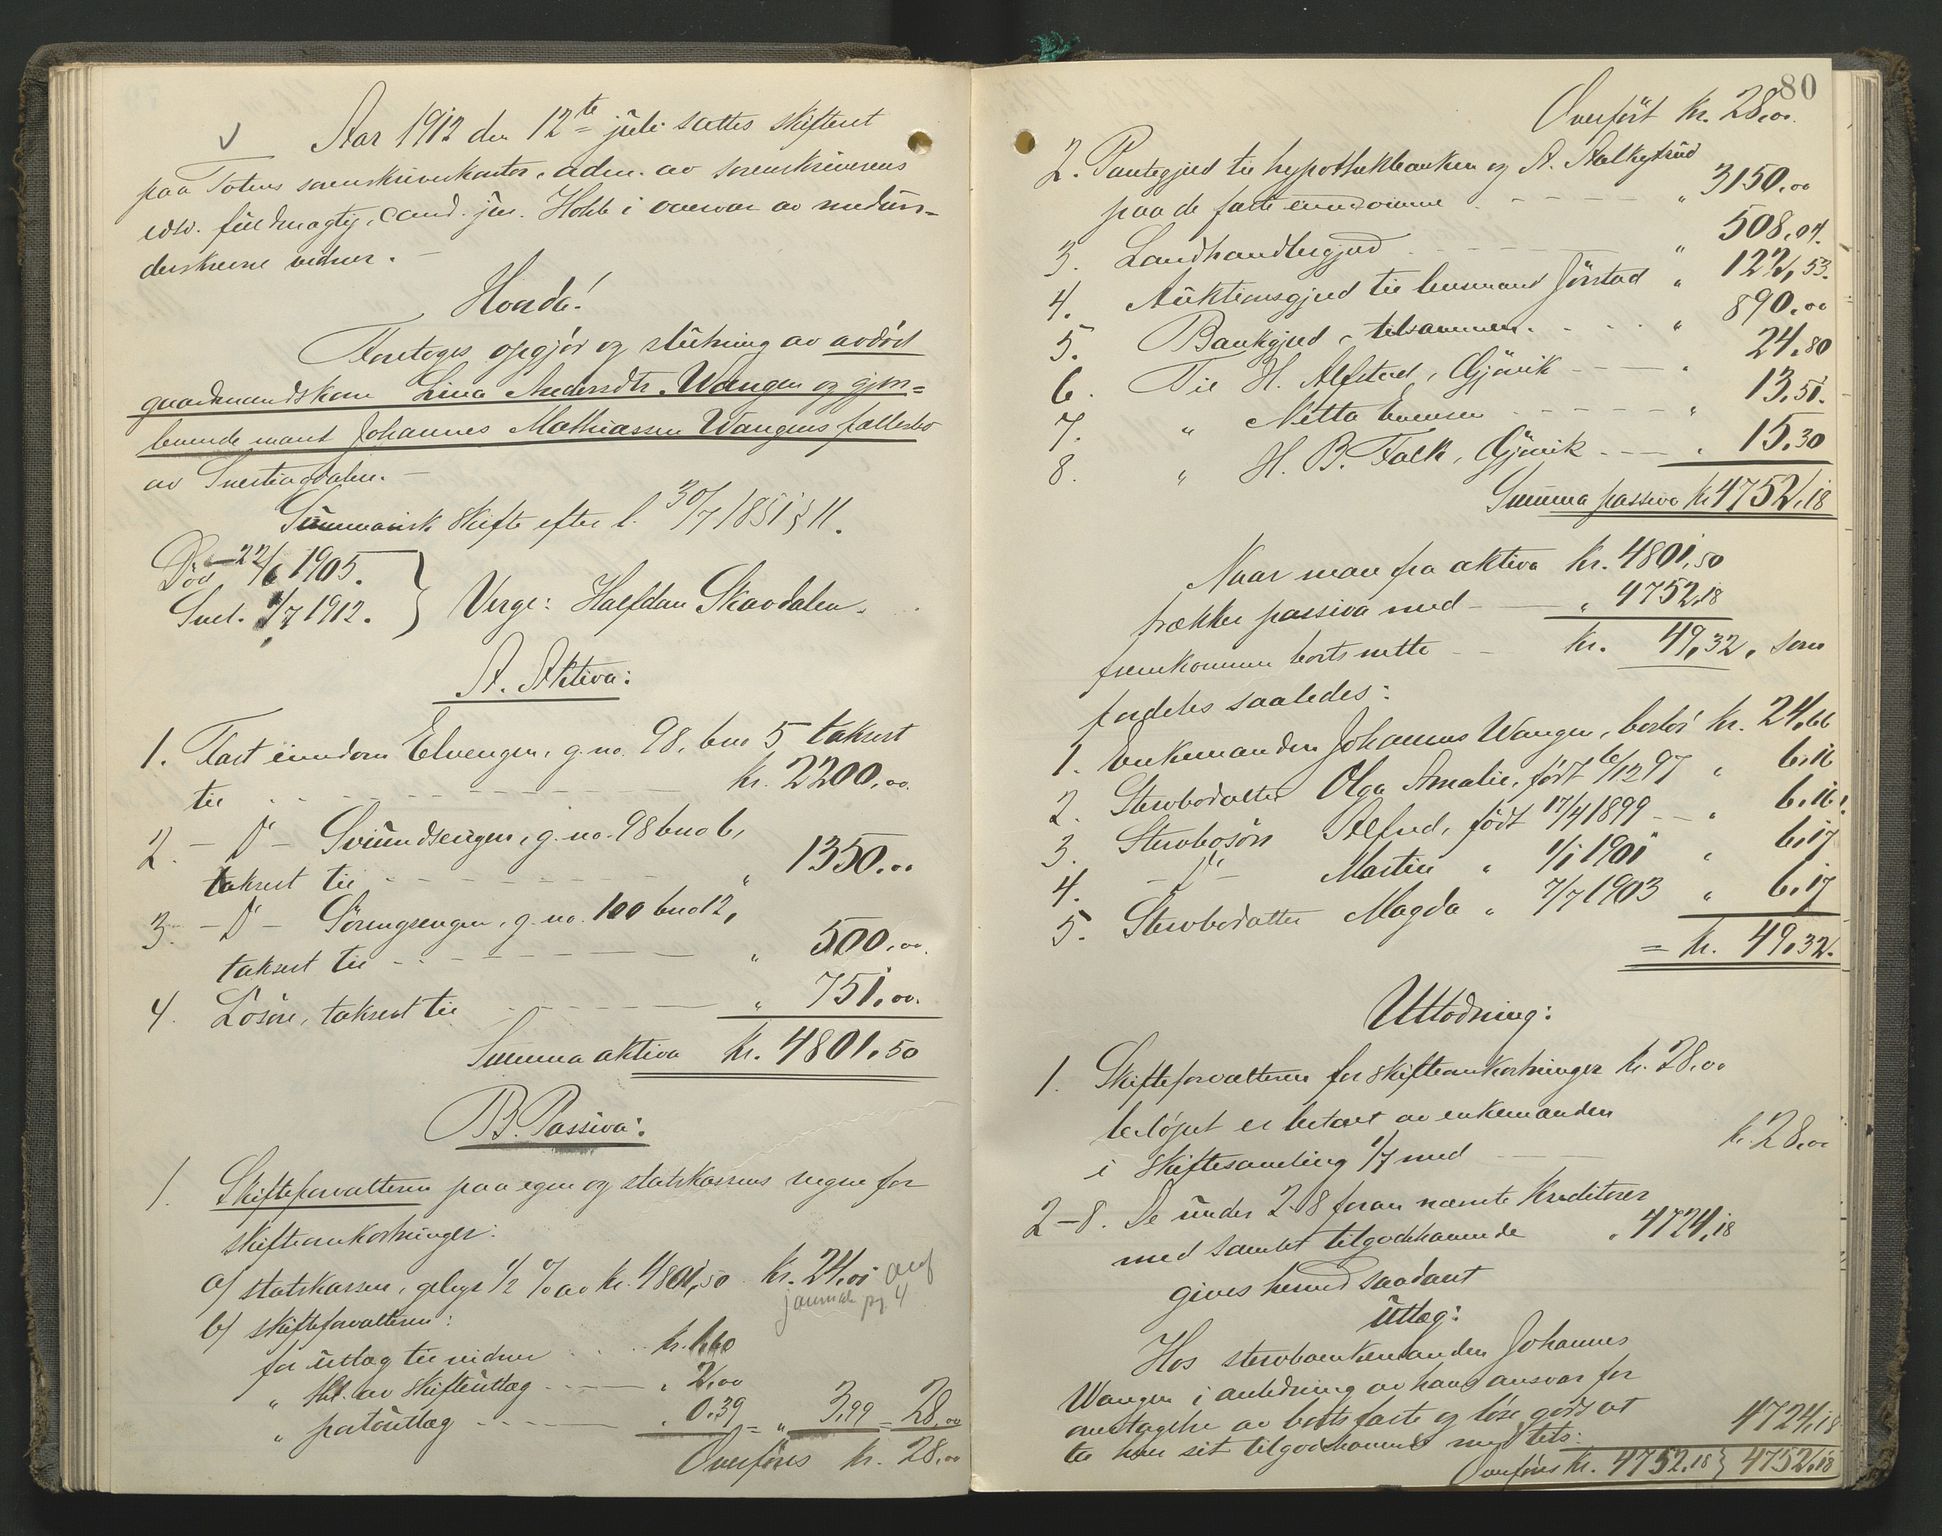 Aar 1912 den 12te juli sattes skifteret
paa Totens sorenskriverkontor, adm. av sorenskriverens
edsv. fuldmægtig, cand. jur. Holst i overvær av medun-
derskrevne vidner. —
Hvorda!
Foretoges opgjør og slutning av avdöd
gaardmandskone Lina Andersdtr. Wangen og gjen-
levende mand Johannes Mathiassen Wangens fællesbo
av Snertingdalen. —
Summarisk skifte efter l. 30/7 1851 § 11.
Död 22/6 1905.
Snel. 1/7 1912. } Verge: Halfdan Skavdalen.
A. Aktiva:
1. Fast eiendom Elvengen, g.no. 98, bno 5 takseret
til kr. 2200,00.
2. - D° - Sviundsengen, g.no. 98 bno 6,
takseret til " 1350.00
3. - D° - Söringsengen, g.no. 100 bno 12,
takseret til " 500,00.
4. Lösöre, takseret til " 751,00.
Summa aktiva kr. 4801.50
B. Passiva:
1. Skifteforvalteren paa egne og statskassens vegne for
skifteomkostninger:
a) statskassen, gebyr 1/2 % av kr. 4801,50 kr. 24,01
journal pg. 4
b) skifteforvalteren:
for utlæg til vidner kr. 1.60
" av skifteutlæg " 2,00
" portoutlæg " 0.39 = " 3,99 = 28,00
Overföres kr. 28,00
80
Overfört kr. 28,00.
2. Pantegjeld til hypothekbanken og A.
paa de faste eiendomme " 3150,00
3. Landhandlergjeld " 508,04.
4. Auktionsgjeld til lensmand Jörstad " 122,53.
5. Bankgjeld, tilsammen. " 890,00
6. Til H. Alfstad, Gjövik " 24,80
7. " Netta Evensen " 13,51.
8. " H. B. Falk, Gjövik " 15,30
Summa passiva kr 4752,18
Naar man fra aktiva kr. 4801,50
trækker passiva med " 4752,18
fremkommer boets netto kr. 49,32, som
fordeles saaledes:
1. Enkemanden Johannes Wangen, boslod kr. 24,66
2. Stervbodatter Olga Amalie, født 6/12 97 " 6,16
3. Stervbosön Alfred, født 17/4 1899 " 6,16
4. - D° - Martin " 1/1 1901 " 6,17
5. Stervbodatter Magda " 7/7 1903 " 6,17
= kr. 49,32.
Utlodning:
1. Skifteforvalteren for skifteomkostninger kr. 28,00
belöpet er betalt av enkemanden
i skiftesamling 1/7 med kr. 28,00
2-8. De under 2-8 foran nævnte kreditorer
med samlet tilgodehavende " 4724,18
gives herved saadant
utlæg:
Hos stervboenkemanden Johannes
Wangen i anledning av hans ansvar for
overtagelse av boets faste og löse gods at
ta hver sit tilgodehavende med tils: 4724,18
Overföres kr. 4752,18 } 4752,18